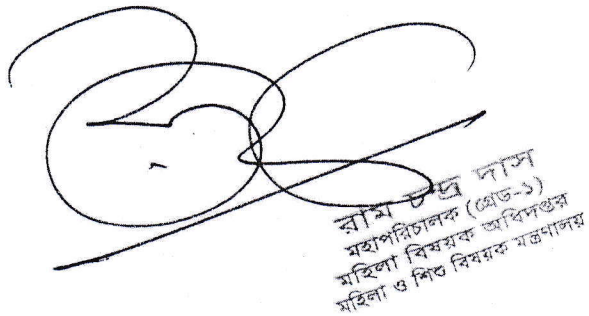 রাম চন্দ্র দাস
মহাপরিচালক (গ্রেড-১)
মহিলা বিষয়ক অধিদপ্তর
মহিলা ও শিশু বিষয়ক মন্ত্রণালয়